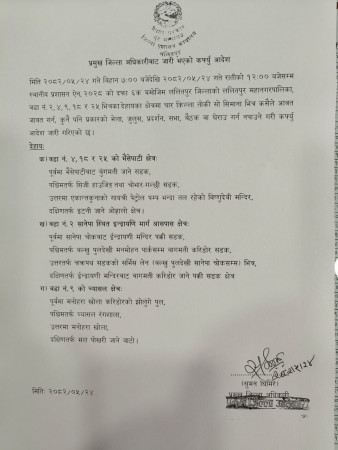 नेपाल सरकार
गृह मन्त्रालय
जिल्ला प्रशासन कार्यालय
ललितपुर
प्रमुख जिल्ला अधिकारीबाट जारी भएको कर्फ्यु आदेश
मिति २०८२/०५/२४ गते विहान ७:०० बजेदेखि २०८२/०५/२४ गते रातीको १२:०० बजेसम्म
स्थानीय प्रशासन ऐन,२०२८ को दफा ६क बमोजिम ललितपुर जिल्लाको ललितपुर महानगरपालिका,
वडा नं.२,४,९,१८ र २५ भित्रका देहायका क्षेत्रका चार किल्ला तोकी सो सिमाना भित्र कसैले आवत
जावत गर्न, कुनै पनि प्रकारको भेला, जुलुस, प्रदर्शन, सभा, बैठक वा घेराउ गर्न नपाउने गरी कर्फ्यु
आदेश जारी गरिएको छ।
देहायः
क) वडा नं. ४,१८ र २५ को भैंसेपाटी क्षेत्रः
पूर्वमा भैंसेपाटीबाट बुंगमती जाने सडक,
पश्चिमतर्फ सिजी हाउजिङ तथा चोभार-गल्छी सडक,
उत्तरमा एकान्तकुनाको साथी पेट्रोल पम्प भन्दा तल रहेको विष्णुदेवी मन्दिर,
दक्षिणतर्फ डटनी जाने ओह्राली क्षेत्र।
ख) वडा नं.२ सानेपा स्थित इन्द्रायणी मन्दिर मार्ग आसपास क्षेत्रः
पूर्वमा सानेपा चोकबाट इन्द्रायणी मन्दिर पक्की सडक,
पश्चिमतर्फ बल्खु पुलदेखी मनमोहन पार्कसम्म बागमती करिडोर सडक,
उत्तरतर्फ चक्रपथ सडकको सर्भिस लेन (बल्खु पुलदेखी सानेपा चोकसम्म) भित्र,
दक्षिणतर्फ इन्द्रायणी मन्दिरबाट बागमती करिडोर जाने पक्की सडक क्षेत्र
ग) वडा नं.९ को च्यासल क्षेत्रः
पूर्वमा मनोहरा खोला करिडोरको झोलुंगे पुल,
पश्चिमतर्फ च्यासल रंगशाला,
उत्तरमा मनोहरा खोला,
दक्षिणतर्फ मल पोखरी जाने बाटो।
२०८२।५।२४
(सुमन घिमिरे)
प्रमुख जिल्ला अधिकारी
प्रमुख जिल्ला अधिकारी
मिति: २०८२/०५/२४